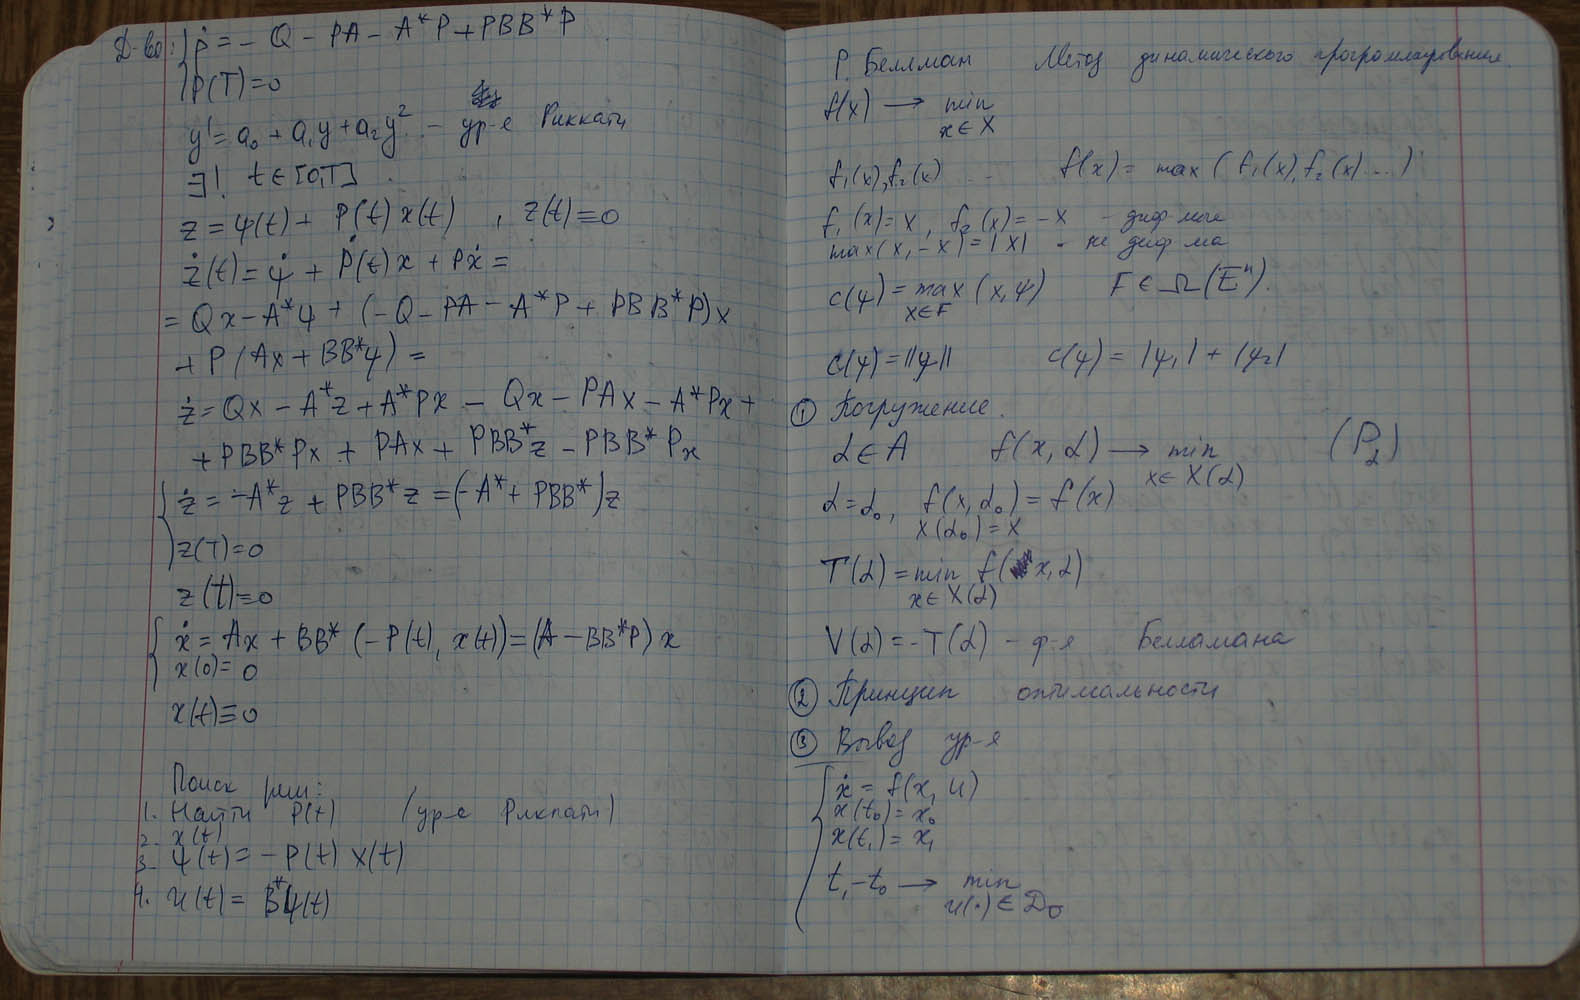 Д-во: { Ṗ = - Q - PA - A*P + PBB*P
P(T)=0
y' = a₀ + a₁y + a₂y² - ур-е Риккати
∃! t ∈ [0,T]
z = ψ(t) + P(t)x(t) , z(t)≡0
ż(t) = ψ̇ + Ṗ(t)x + Pẋ =
= Qx - A*ψ + (-Q - PA - A*P + PBB*P)x
+ P(Ax + BB*ψ) =
ż = Qx - A*z + A*Px - Qx - PAx - A*Px +
+ PBB*Px + PAx + PBB*z - PBB*Px
{ ż = -A*z + PBB*z = (-A* + PBB*)z
z(T)=0
z(t)≡0
{ ẋ = Ax + BB*(-P(t), x(t)) = (A - BB*P)x
x(0) = 0
x(t)≡0
Поиск реш:
1. Найти P(t) (ур-е Риккати)
2. x(t)
3. ψ(t) = -P(t) x(t)
4. u(t) = B*ψ(t)
Р. Беллман Метод динамического программирования.
f(x) → min
x∈X
f₁(x), f₂(x) ... f(x) = max (f₁(x), f₂(x) ...)
f₁(x) = x, f₂(x) = -x - диф-мые
max(x, -x) = |x| - не диф-ма
c(ψ) = max (x,ψ) F ∈ Ω(Eⁿ).
x∈F
c(ψ) = ||ψ|| c(ψ) = |ψ₁| + |ψ₂|
① Погружение.
α ∈ A f(x, α) → min (P_α)
x∈X(α)
α = α₀, f(x, α₀) = f(x)
X(α₀) = X
T(α) = min f(x, α)
x∈X(α)
V(α) = -T(α) - ф-я Беллмана
② Принцип оптимальности
③ Вывод ур-я
{ ẋ = f(x, u)
x(t₀) = x₀
x(t₁) = x₁
t₁ - t₀ → min
u(·) ∈ D₀